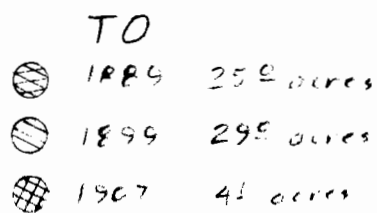 TO
1889 25º acres
1899 acres
1907 acres